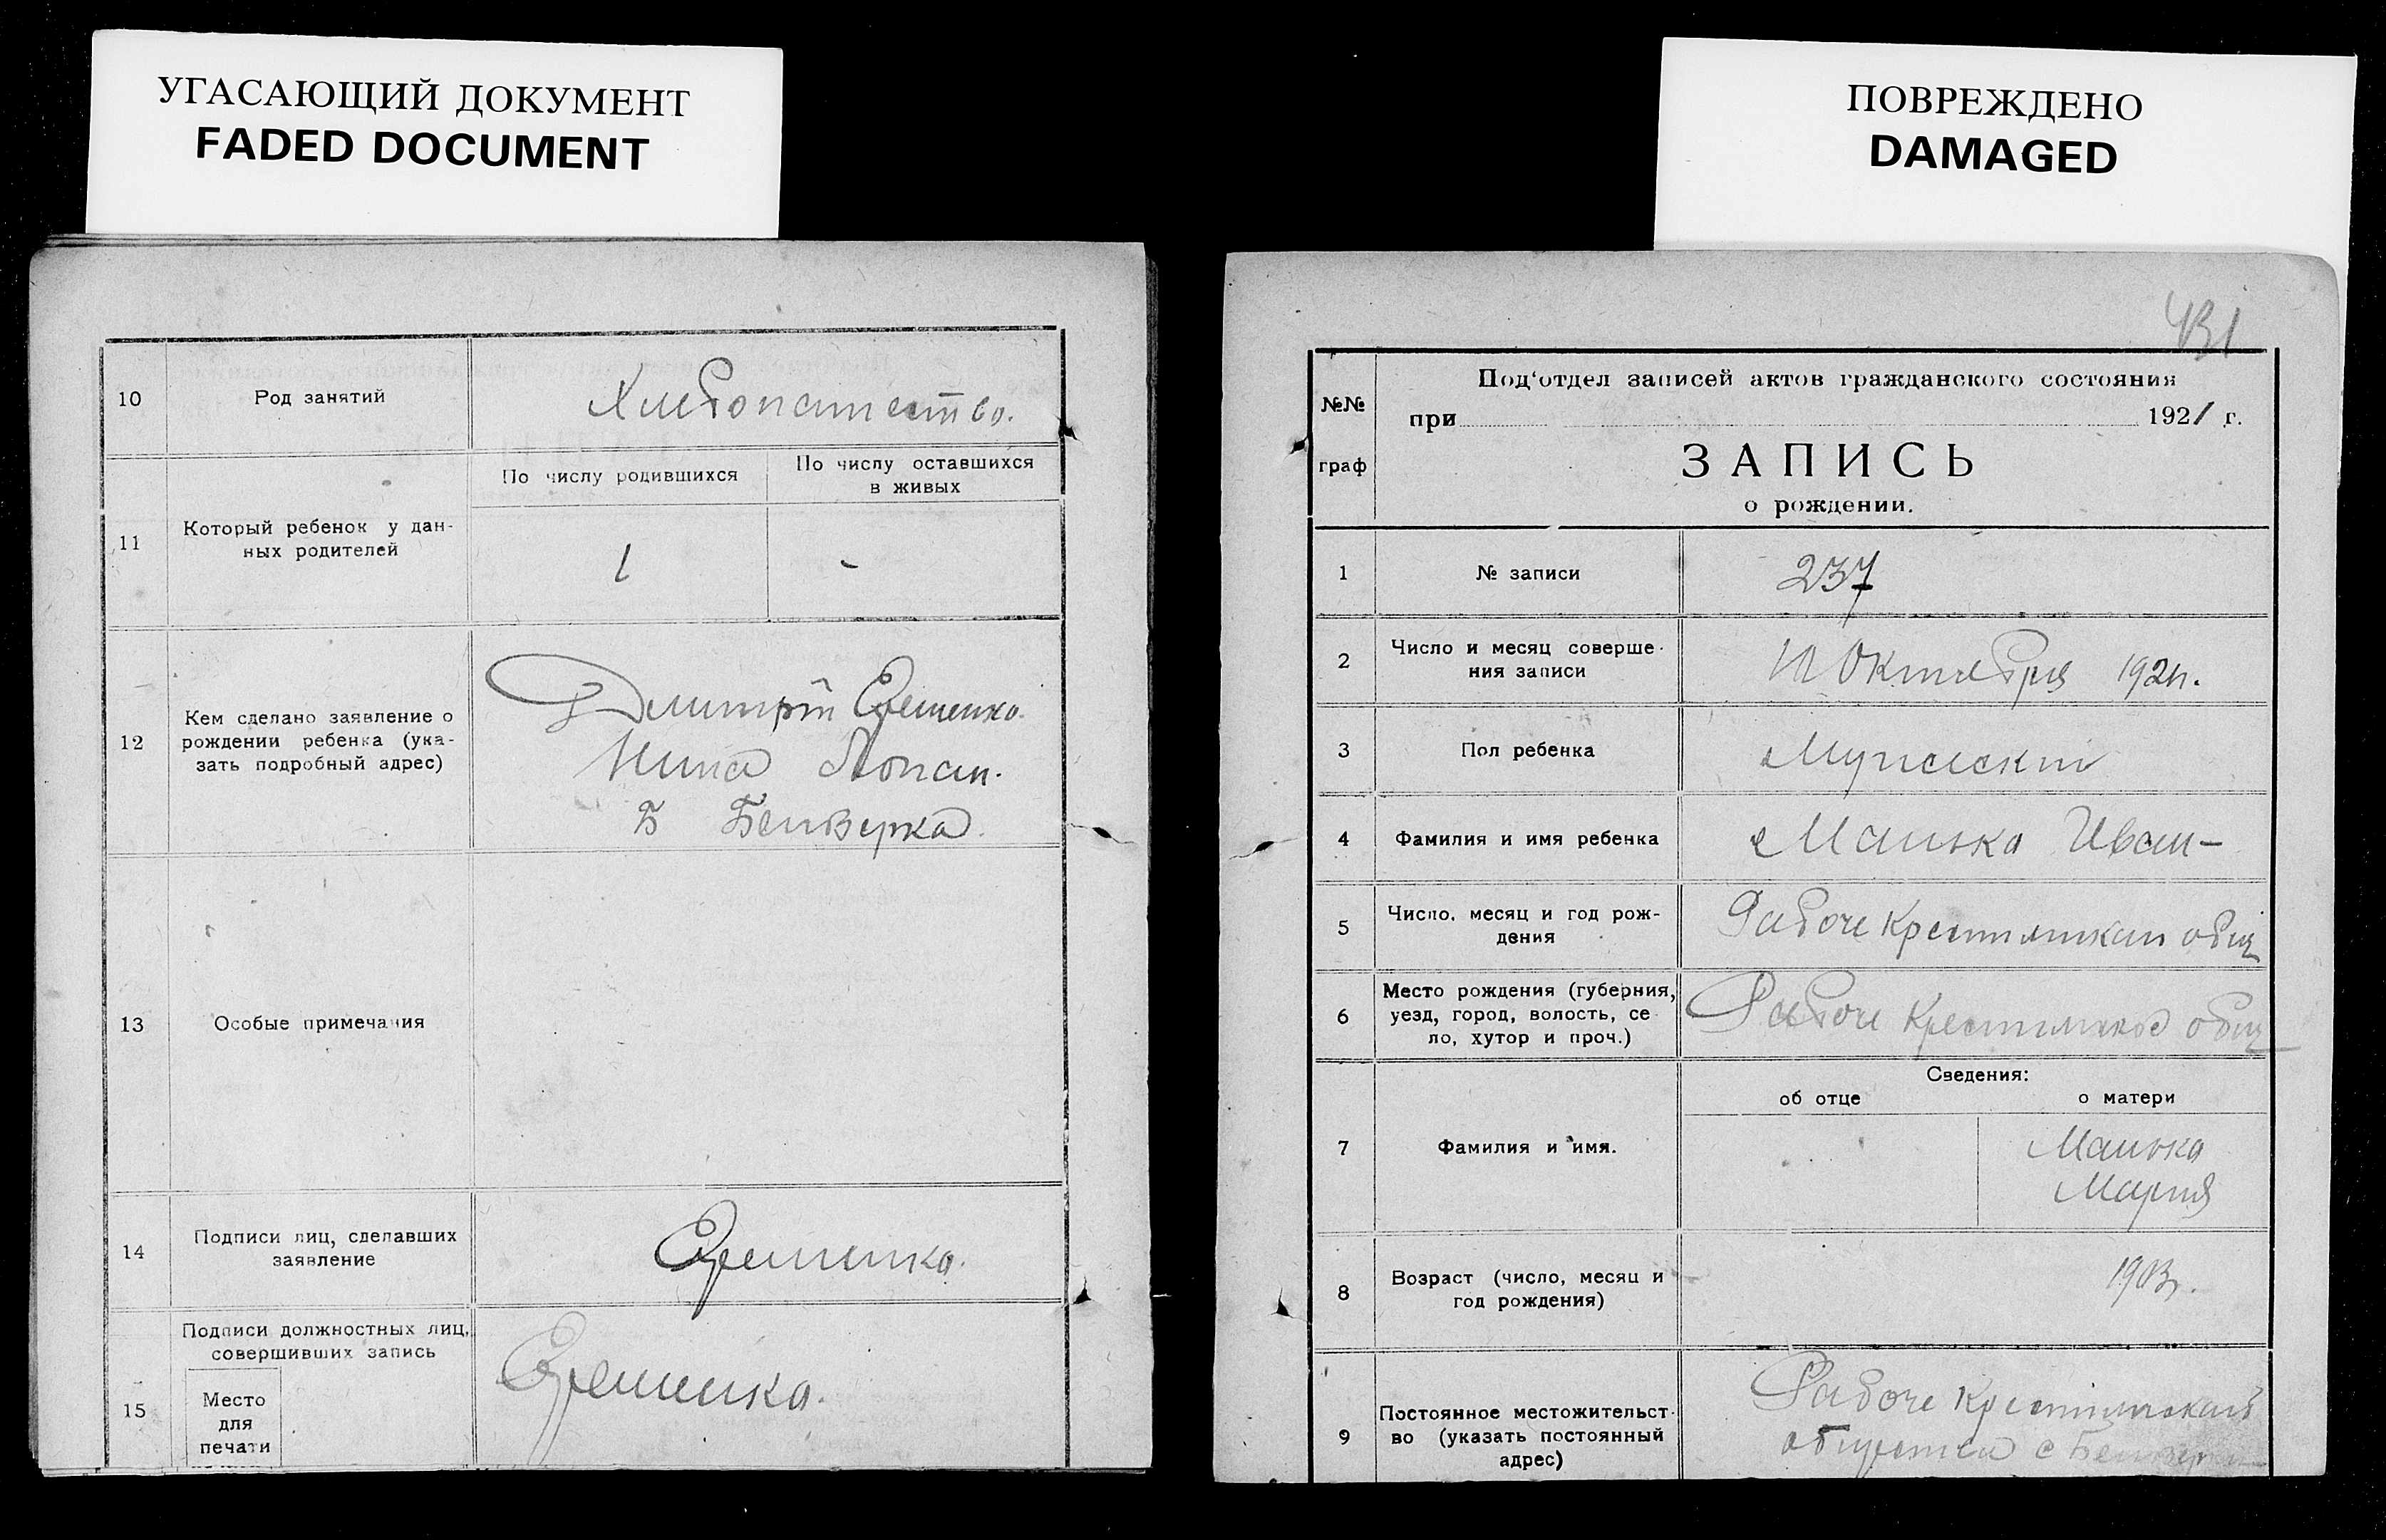 УГАСАЮЩИЙ ДОКУМЕНТ
FADED DOCUMENT
10 Род занятий Хлебопашество.
11 Который ребенок у дан-
ных родителей
По числу родившихся
По числу оставшихся
в живых
1 -
12 Кем сделано заявление о
рождении ребенка (ука-
зать подробный адрес)
Дмитрій Ерешенко.
Нина
Б
13 Особые примечания
14 Подписи лиц, сделавших
заявление
Ерешенко.
15 Подписи должностных лиц,
совершивших запись
Место
для
печати
Ерешенко.
ПОВРЕЖДЕНО
DAMAGED
431
№№
граф
Под'отдел записей актов гражданского состояния
при 1921 г.
ЗАПИСЬ
о рождении.
1 № записи 237
2 Число и месяц соверше-
ния записи
10 Октября 1921г.
3 Пол ребенка Мужескій
4 Фамилия и имя ребенка Манько Иван-
5 Число, месяц и год рож-
дения
Рабоче Крестьянская общ
6 Место рождения (губерния,
уезд, город, волость, се-
ло, хутор и проч.)
Рабоче Крестьянское общ
Сведения:
об отце о матери
7 Фамилия и имя.
Манько
Мария
8 Возраст (число, месяц и
год рождения)
1903г.
9 Постоянное местожительст-
во (указать постоянный
адрес)
Рабоче Крестьянской
с